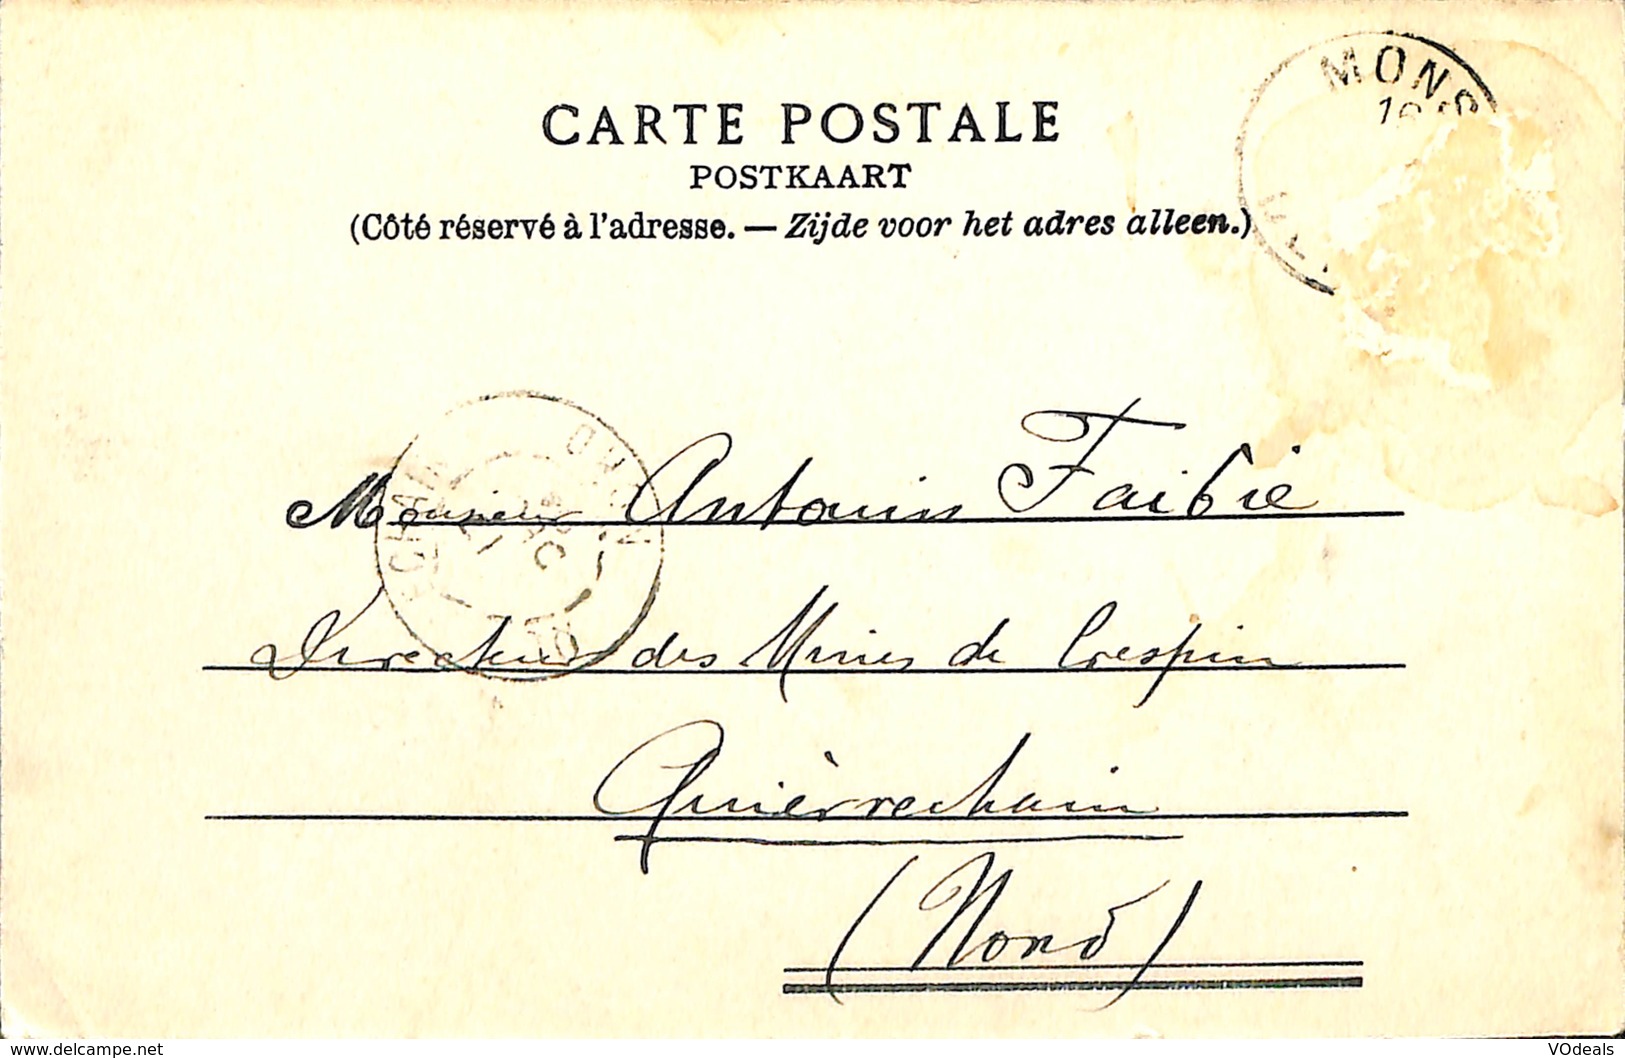 MONS
CARTE POSTALE
POSTKAART
(Côté réservé à l'adresse. — Zijde voor het adres alleen.)
Monsieur Antonin Faibie
Directeur des Mines de Crespin
Quièvrechain
(Nord)
www.delcampe.net
VOdeals